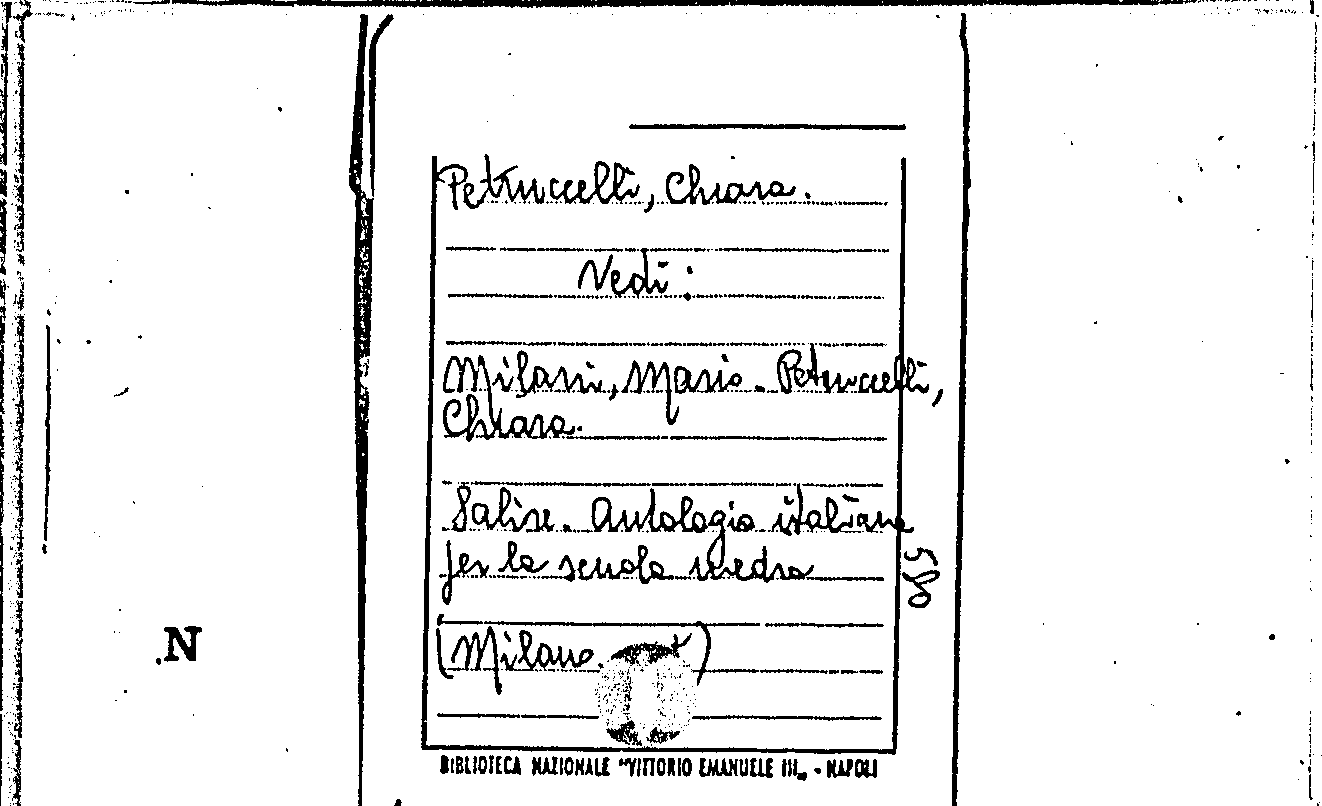 Petruccelli, Chiara.
Vedi:
Milani, Mario. Petruccelli,
Chiara.
Salire. Antologia italiana
per la scuola media
580
(Milano. )
.N
BIBLIOTECA NAZIONALE "VITTORIO EMANUELE III„ - NAPOLI